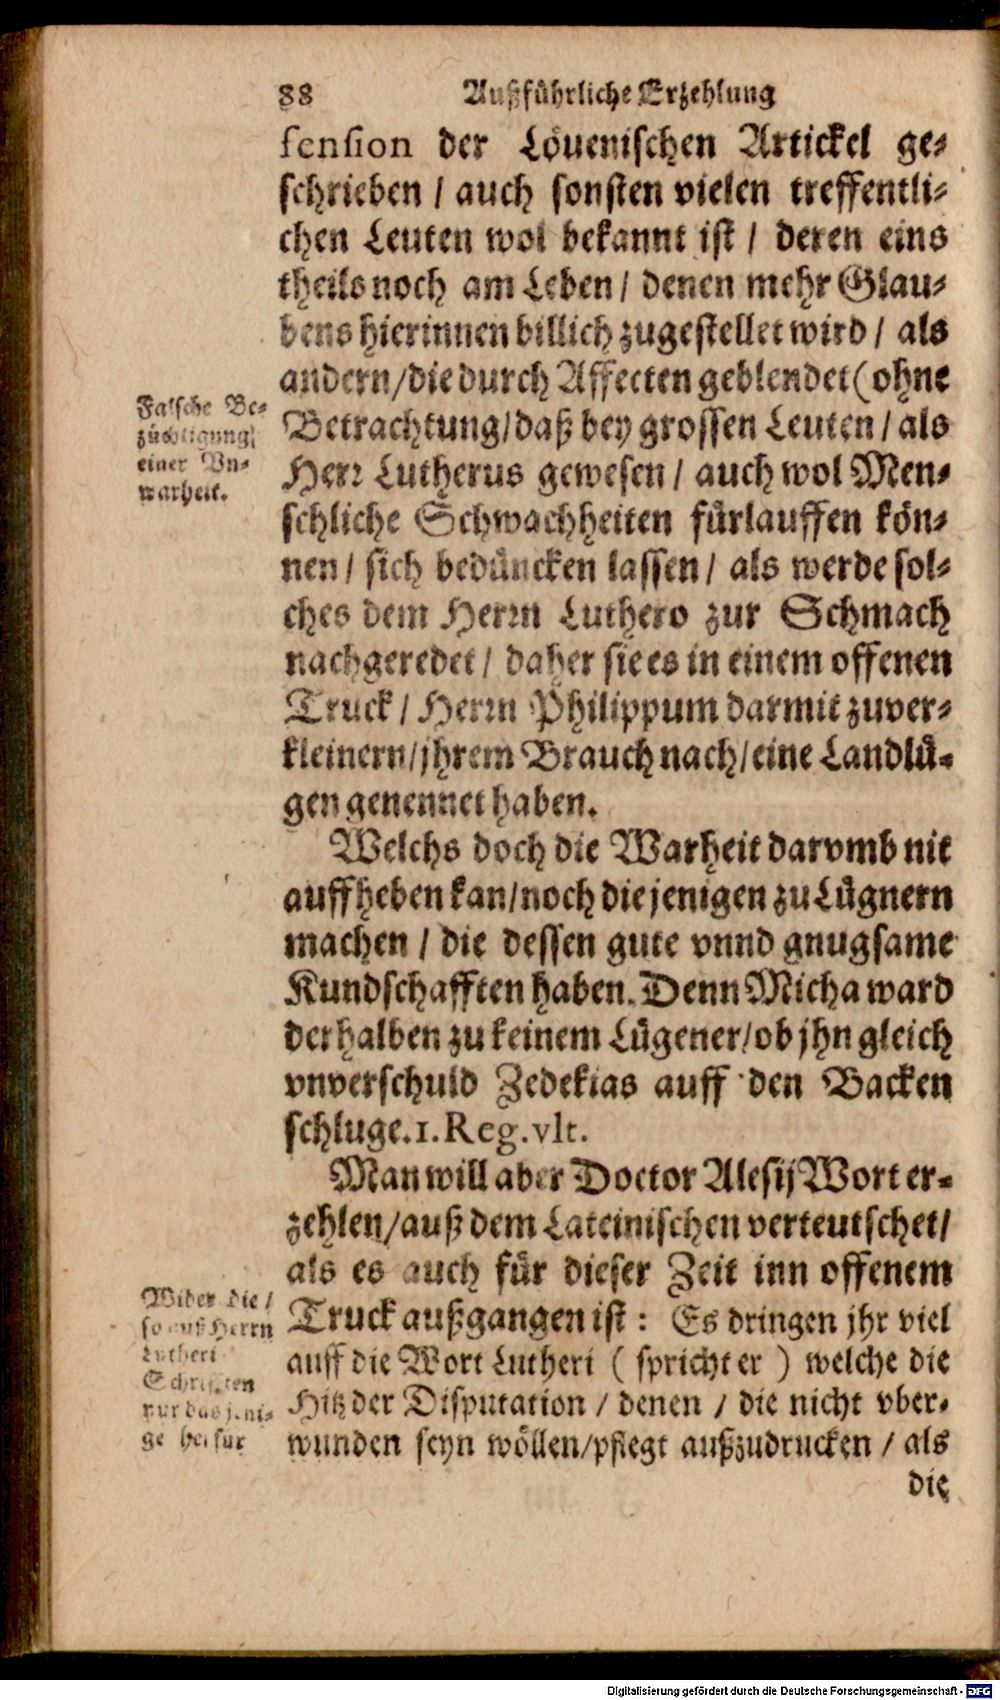 88 Außführliche Erzehlung
sension der Löuenischen Artickel ge-
schrieben / auch sonsten vielen treffentli-
chen Leuten wol bekannt ist / deren eins
theils noch am Leben / denen mehr Glau-
bens hierinnen billich zugestellet wird / als
andern / die durch Affecten geblendet (ohne
Betrachtung / daß bey grossen Leuten / als
Herr Lutherus gewesen / auch wol Men-
schliche Schwachheiten fürlauffen kön-
nen / sich bedüncken lassen / als werde sol-
ches dem Herrn Luthero zur Schmach
nachgeredet / daher sie es in einem offenen
Truck / Herrn Philippum darmit zuver-
kleinern / jhrem Brauch nach / eine Landlü-
gen genennet haben.
Falsche Be-
züchtigung
einer Vn-
warheit.
Welchs doch die Warheit darvmb nit
auffheben kan / noch die jenigen zu Lügnern
machen / die dessen gute vnnd gnugsame
Kundschafften haben. Denn Micha ward
derhalben zu keinem Lügener / ob jhn gleich
vnverschuld Zedekias auff den Backen
schluge. 1. Reg. vlt.
Man will aber Doctor Alesij Wort er-
zehlen / auß dem Lateinischen verteutschet /
als es auch für dieser Zeit inn offenem
Truck außgangen ist : Es dringen jhr viel
auff die Wort Lutheri ( spricht er ) welche die
Hitz der Disputation / denen / die nicht vber-
wunden seyn wöllen / pflegt außzudrucken / als
die
Wider die /
so auß Herrn
Lutheri
Schrifften
nur das jeni-
ge herfür
Digitalisierung gefördert durch die Deutsche Forschungsgemeinschaft - DFG